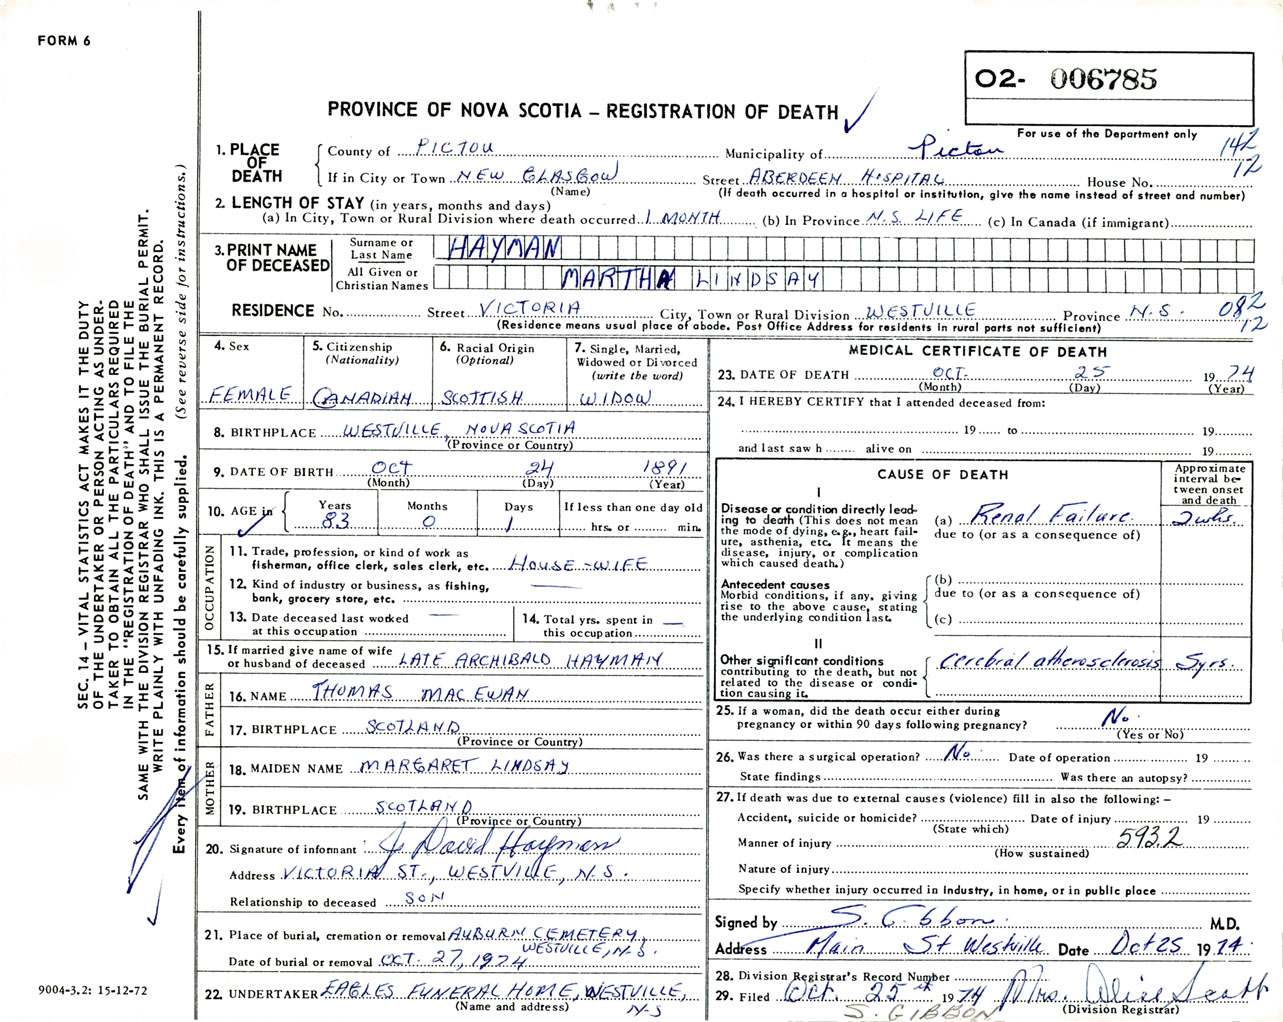 FORM 6
O2- 006785
For use of the Department only
PROVINCE OF NOVA SCOTIA – REGISTRATION OF DEATH
142
12
1. PLACE OF DEATH
County of PICTOU Municipality of Pictou
If in City or Town NEW GLASGOW Street ABERDEEN HOSPITAL House No.
(Name) (If death occurred in a hospital or institution, give the name instead of street and number)
2. LENGTH OF STAY (in years, months and days)
(a) In City, Town or Rural Division where death occurred 1 MONTH (b) In Province N.S. LIFE (c) In Canada (if immigrant)
3. PRINT NAME OF DECEASED
Surname or Last Name HAYMAN
All Given or Christian Names MARTHA LINDSAY
RESIDENCE No. Street VICTORIA City, Town or Rural Division WESTVILLE Province N.S. 082
12
(Residence means usual place of abode. Post Office Address for residents in rural parts not sufficient)
4. Sex
FEMALE
5. Citizenship
(Nationality)
CANADIAN
6. Racial Origin
(Optional)
SCOTTISH
7. Single, Married,
Widowed or Divorced
(write the word)
WIDOW
8. BIRTHPLACE WESTVILLE, NOVA SCOTIA
(Province or Country)
9. DATE OF BIRTH OCT 24 1891
(Month) (Day) (Year)
10. AGE in Years Months Days If less than one day old
83 0 1 hrs. or min.
OCCUPATION
11. Trade, profession, or kind of work as
fisherman, office clerk, sales clerk, etc. HOUSE-WIFE
12. Kind of industry or business, as fishing,
bank, grocery store, etc. —
13. Date deceased last worked —
at this occupation
14. Total yrs. spent in —
this occupation
15. If married give name of wife
or husband of deceased LATE ARCHIBALD HAYMAN
FATHER
16. NAME THOMAS MACEWAN
17. BIRTHPLACE SCOTLAND
(Province or Country)
MOTHER
18. MAIDEN NAME MARGARET LINDSAY
19. BIRTHPLACE SCOTLAND
(Province or Country)
20. Signature of informant J. David Hayman
Address VICTORIA ST., WESTVILLE, N.S.
Relationship to deceased SON
21. Place of burial, cremation or removal AUBURN CEMETERY,
WESTVILLE, N.S.
Date of burial or removal OCT. 27, 1974
22. UNDERTAKER EAGLES FUNERAL HOME, WESTVILLE,
(Name and address) N-S
MEDICAL CERTIFICATE OF DEATH
23. DATE OF DEATH OCT. 25 1974
(Month) (Day) (Year)
24. I HEREBY CERTIFY that I attended deceased from:
19 to 19
and last saw h alive on 19
CAUSE OF DEATH
Approximate
interval be-
tween onset
and death
I
Disease or condition directly lead-
ing to death (This does not mean
the mode of dying, e.g., heart fail-
ure, asthenia, etc. It means the
disease, injury, or complication
which caused death.)
(a) Renal Failure 2 wks.
due to (or as a consequence of)
Antecedent causes
Morbid conditions, if any, giving
rise to the above cause, stating
the underlying condition last.
(b)
due to (or as a consequence of)
(c)
II
Other significant conditions
contributing to the death, but not
related to the disease or condi-
tion causing it.
Cerebral atherosclerosis 5 yrs.
25. If a woman, did the death occur either during
pregnancy or within 90 days following pregnancy? No.
(Yes or No)
26. Was there a surgical operation? No. Date of operation 19
State findings Was there an autopsy?
27. If death was due to external causes (violence) fill in also the following: –
Accident, suicide or homicide? Date of injury 19
(State which)
593.2
Manner of injury
(How sustained)
Nature of injury
Specify whether injury occurred in industry, in home, or in public place
Signed by S. Gibbon. M.D.
Address Main St Westville Date Oct 25 1974.
28. Division Registrar's Record Number
29. Filed Oct. 25th 1974 Mrs. Alice Scott
(Division Registrar)
S. GIBBON
SEC. 14 – VITAL STATISTICS ACT MAKES IT THE DUTY
OF THE UNDERTAKER OR PERSON ACTING AS UNDER-
TAKER TO OBTAIN ALL THE PARTICULARS REQUIRED
IN THE "REGISTRATION OF DEATH" AND TO FILE THE
SAME WITH THE DIVISION REGISTRAR WHO SHALL ISSUE THE BURIAL PERMIT.
WRITE PLAINLY WITH UNFADING INK. THIS IS A PERMANENT RECORD.
Every item of information should be carefully supplied. (See reverse side for instructions.)
9004-3.2: 15-12-72